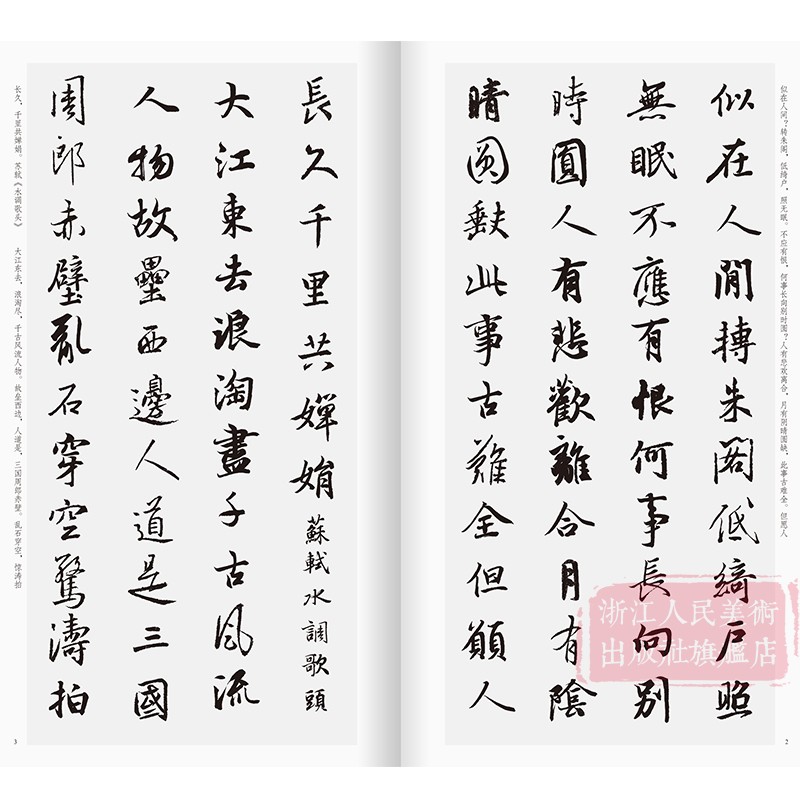 似在人间？转朱阁，低绮户，照无眠。不应有恨，何事长向别时圆？人有悲欢离合，月有阴晴圆缺，此事古难全。但愿人
似在人間轉朱閣低綺户照
無眠不應有恨何事長向别
時圓人有悲歡離合月有陰
晴圓缺此事古難全但願人
浙江人民美術
出版社旗艦店
2
長久千里共嬋娟 蘇軾水調歌頭
大江東去浪淘盡千古風流
人物故壘西邊人道是三國
周郎赤壁亂石穿空驚濤拍
长久，千里共婵娟。苏轼《水调歌头》 大江东去，浪淘尽，千古风流人物。故垒西边，人道是，三国周郎赤壁。乱石穿空，惊涛拍
3